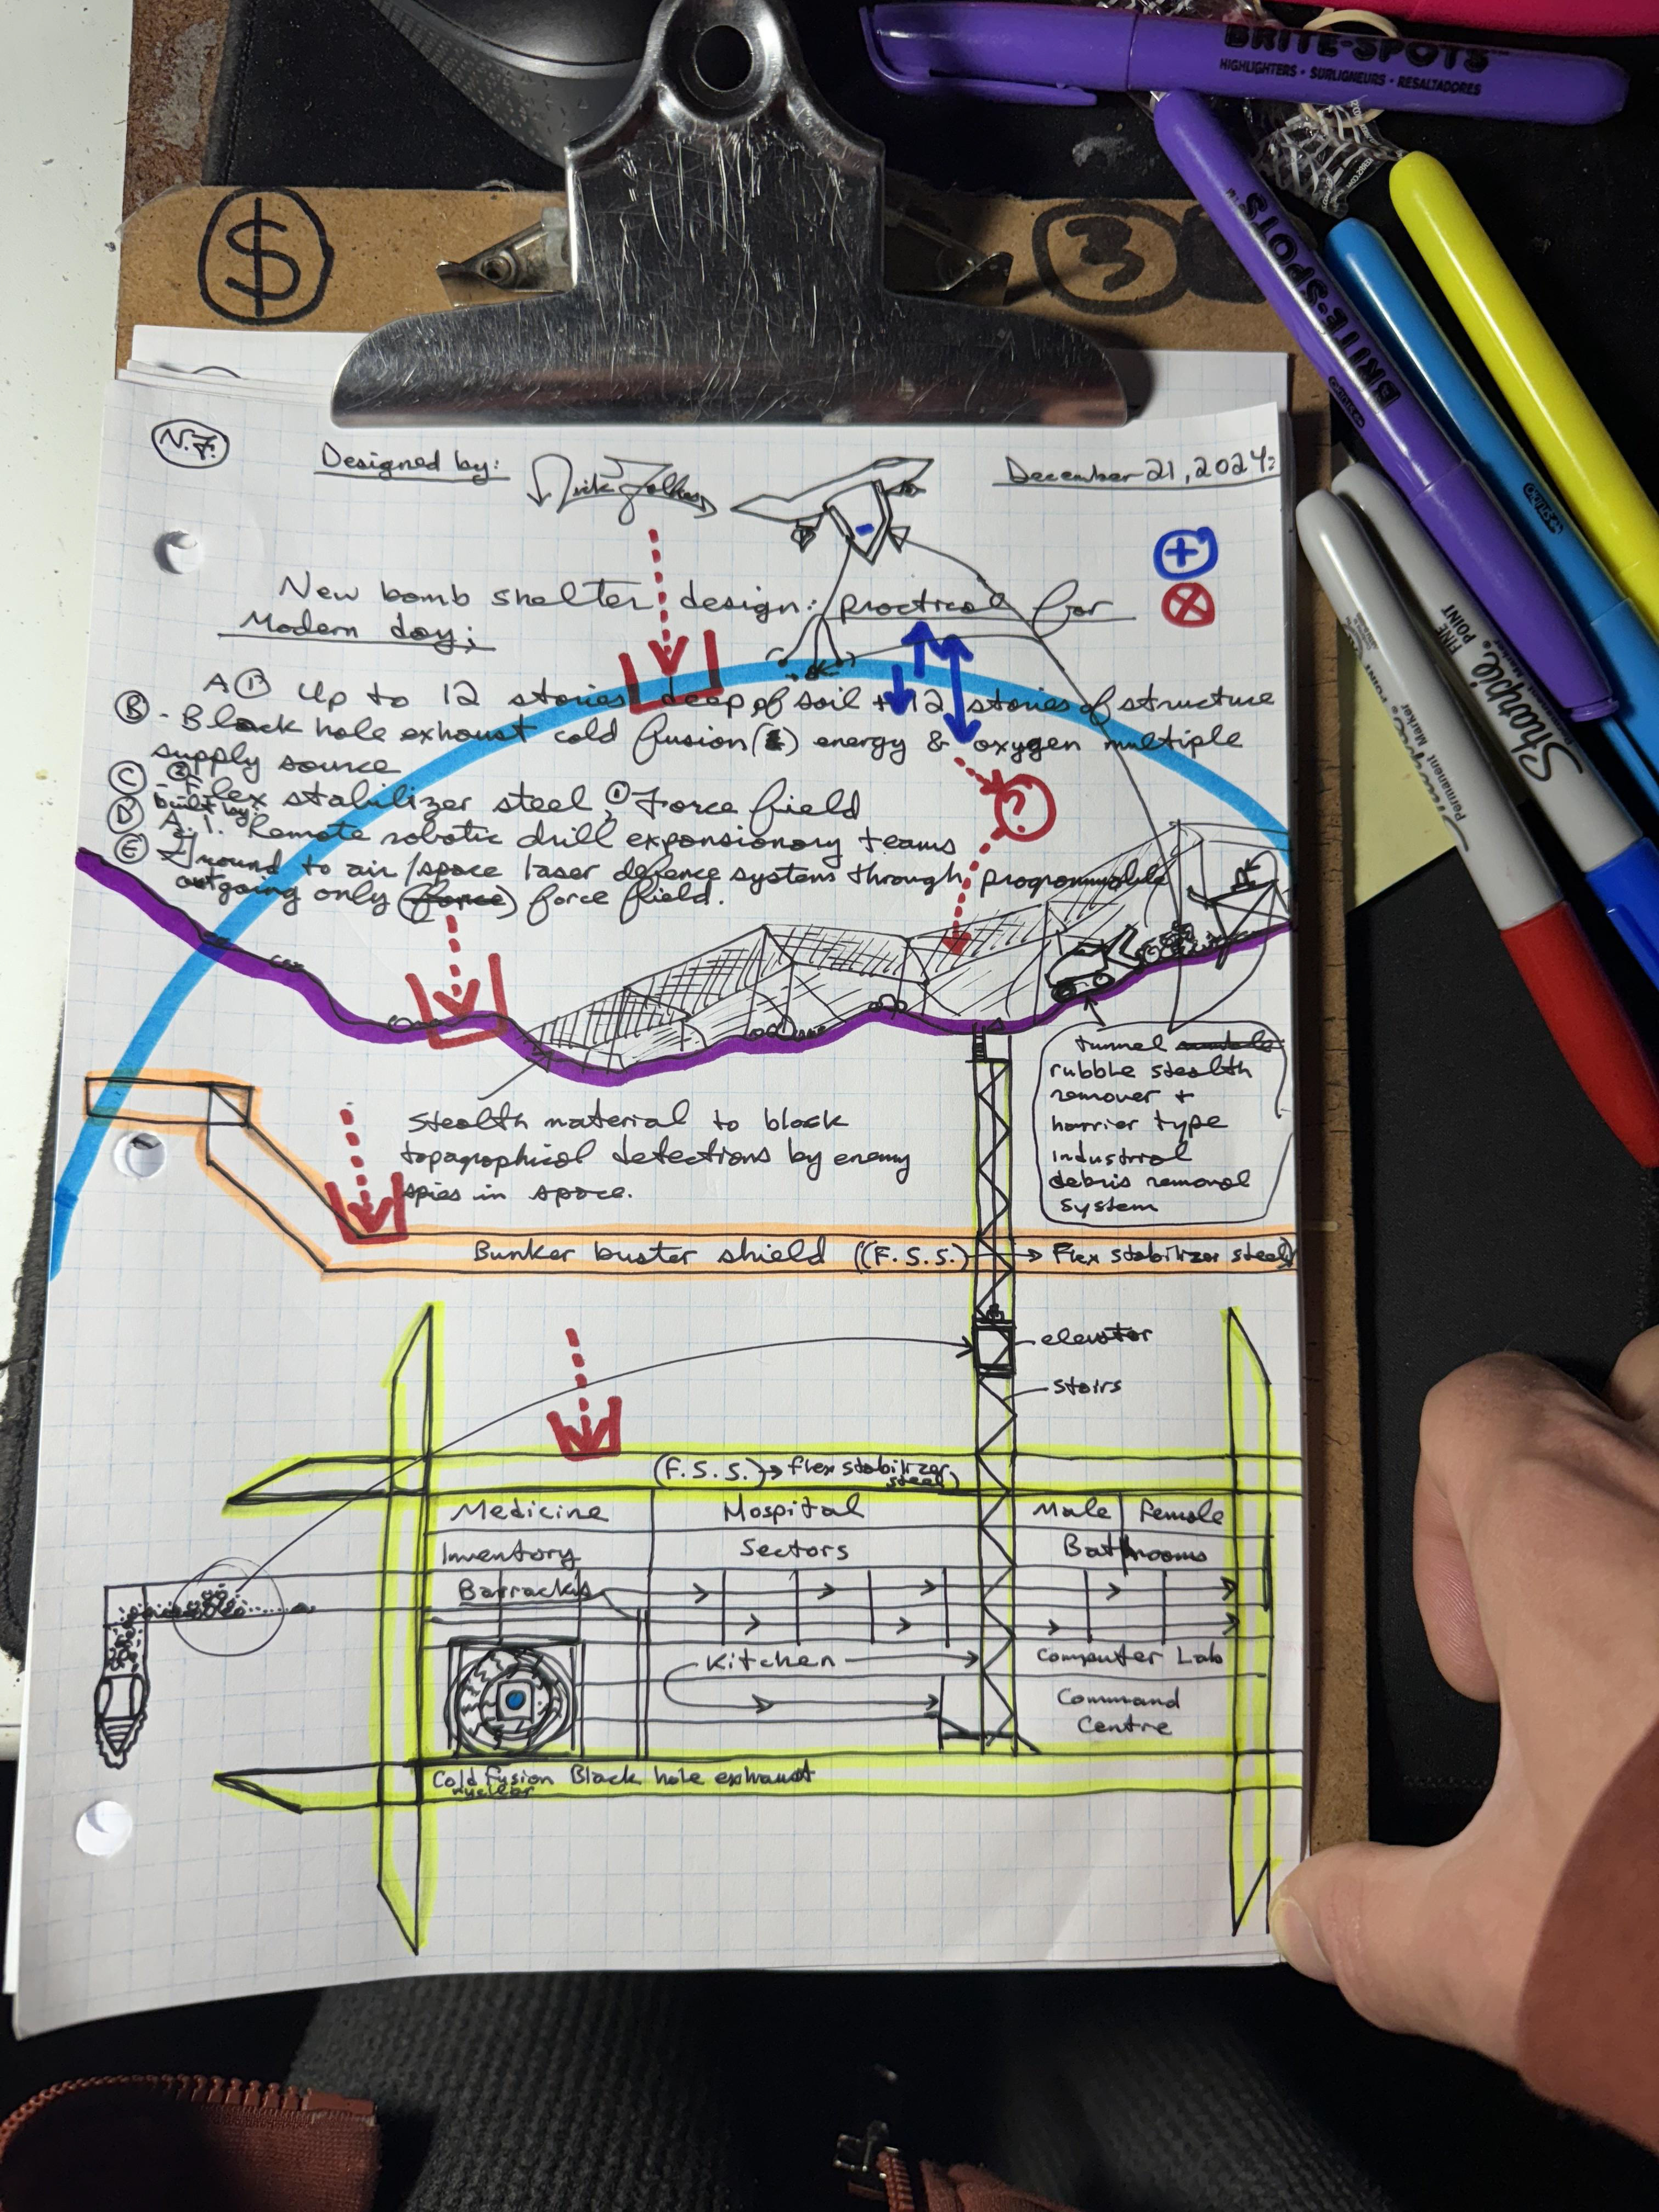 BRITE-SPOTS
HIGHLIGHTERS • SURLIGNEURS • RESALTADORES
BRITE-SPOTS
$
3
Sharpie
FINE POINT
Permanent Marker
N.F.
Designed by: Nick
December 21, 2024
+
New bomb shelter design: practical for
Modern day;
A Up to 12 stories deep of soil + 12 stories of structure
B - Black hole exhaust cold fusion energy & oxygen multiple
supply source
C - ② Flex stabilizer steel, ① Force field
built by:
D A.I. Remote robotic drill expansionary teams
E Ground to air/space laser defence systems through programmable
outgoing only (force) force field.
?
tunnel
rubble stealth
remover +
harrier type
industrial
debris removal
system
Stealth material to block
topographical detections by enemy
spies in space.
Bunker buster shield ((F.S.S.) → Flex stabilizer steel)
elevator
stairs
(F.S.S.) → flex stabilizer
steel)
Medicine Hospital Male Female
Inventory Sectors Bathrooms
Barracks
Kitchen Computer Lab
Command
Centre
Cold Fusion Black hole exhaust
nuclear